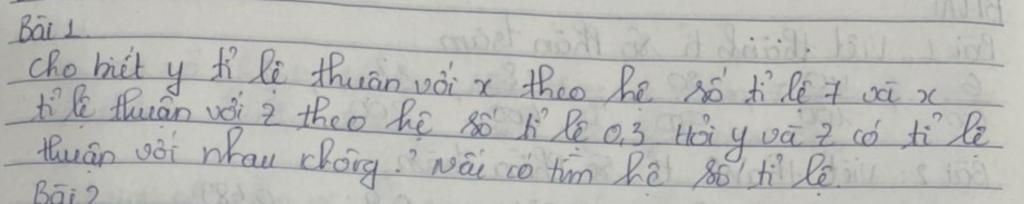 Bài 1
Cho biết y tỉ lệ thuận với x theo hệ số tỉ lệ 7 và x
tỉ lệ thuận với z theo hệ số tỉ lệ 0,3 Hỏi y và z có tỉ lệ
thuận với nhau không? Nếu có tìm hệ số tỉ lệ.
Bài 2